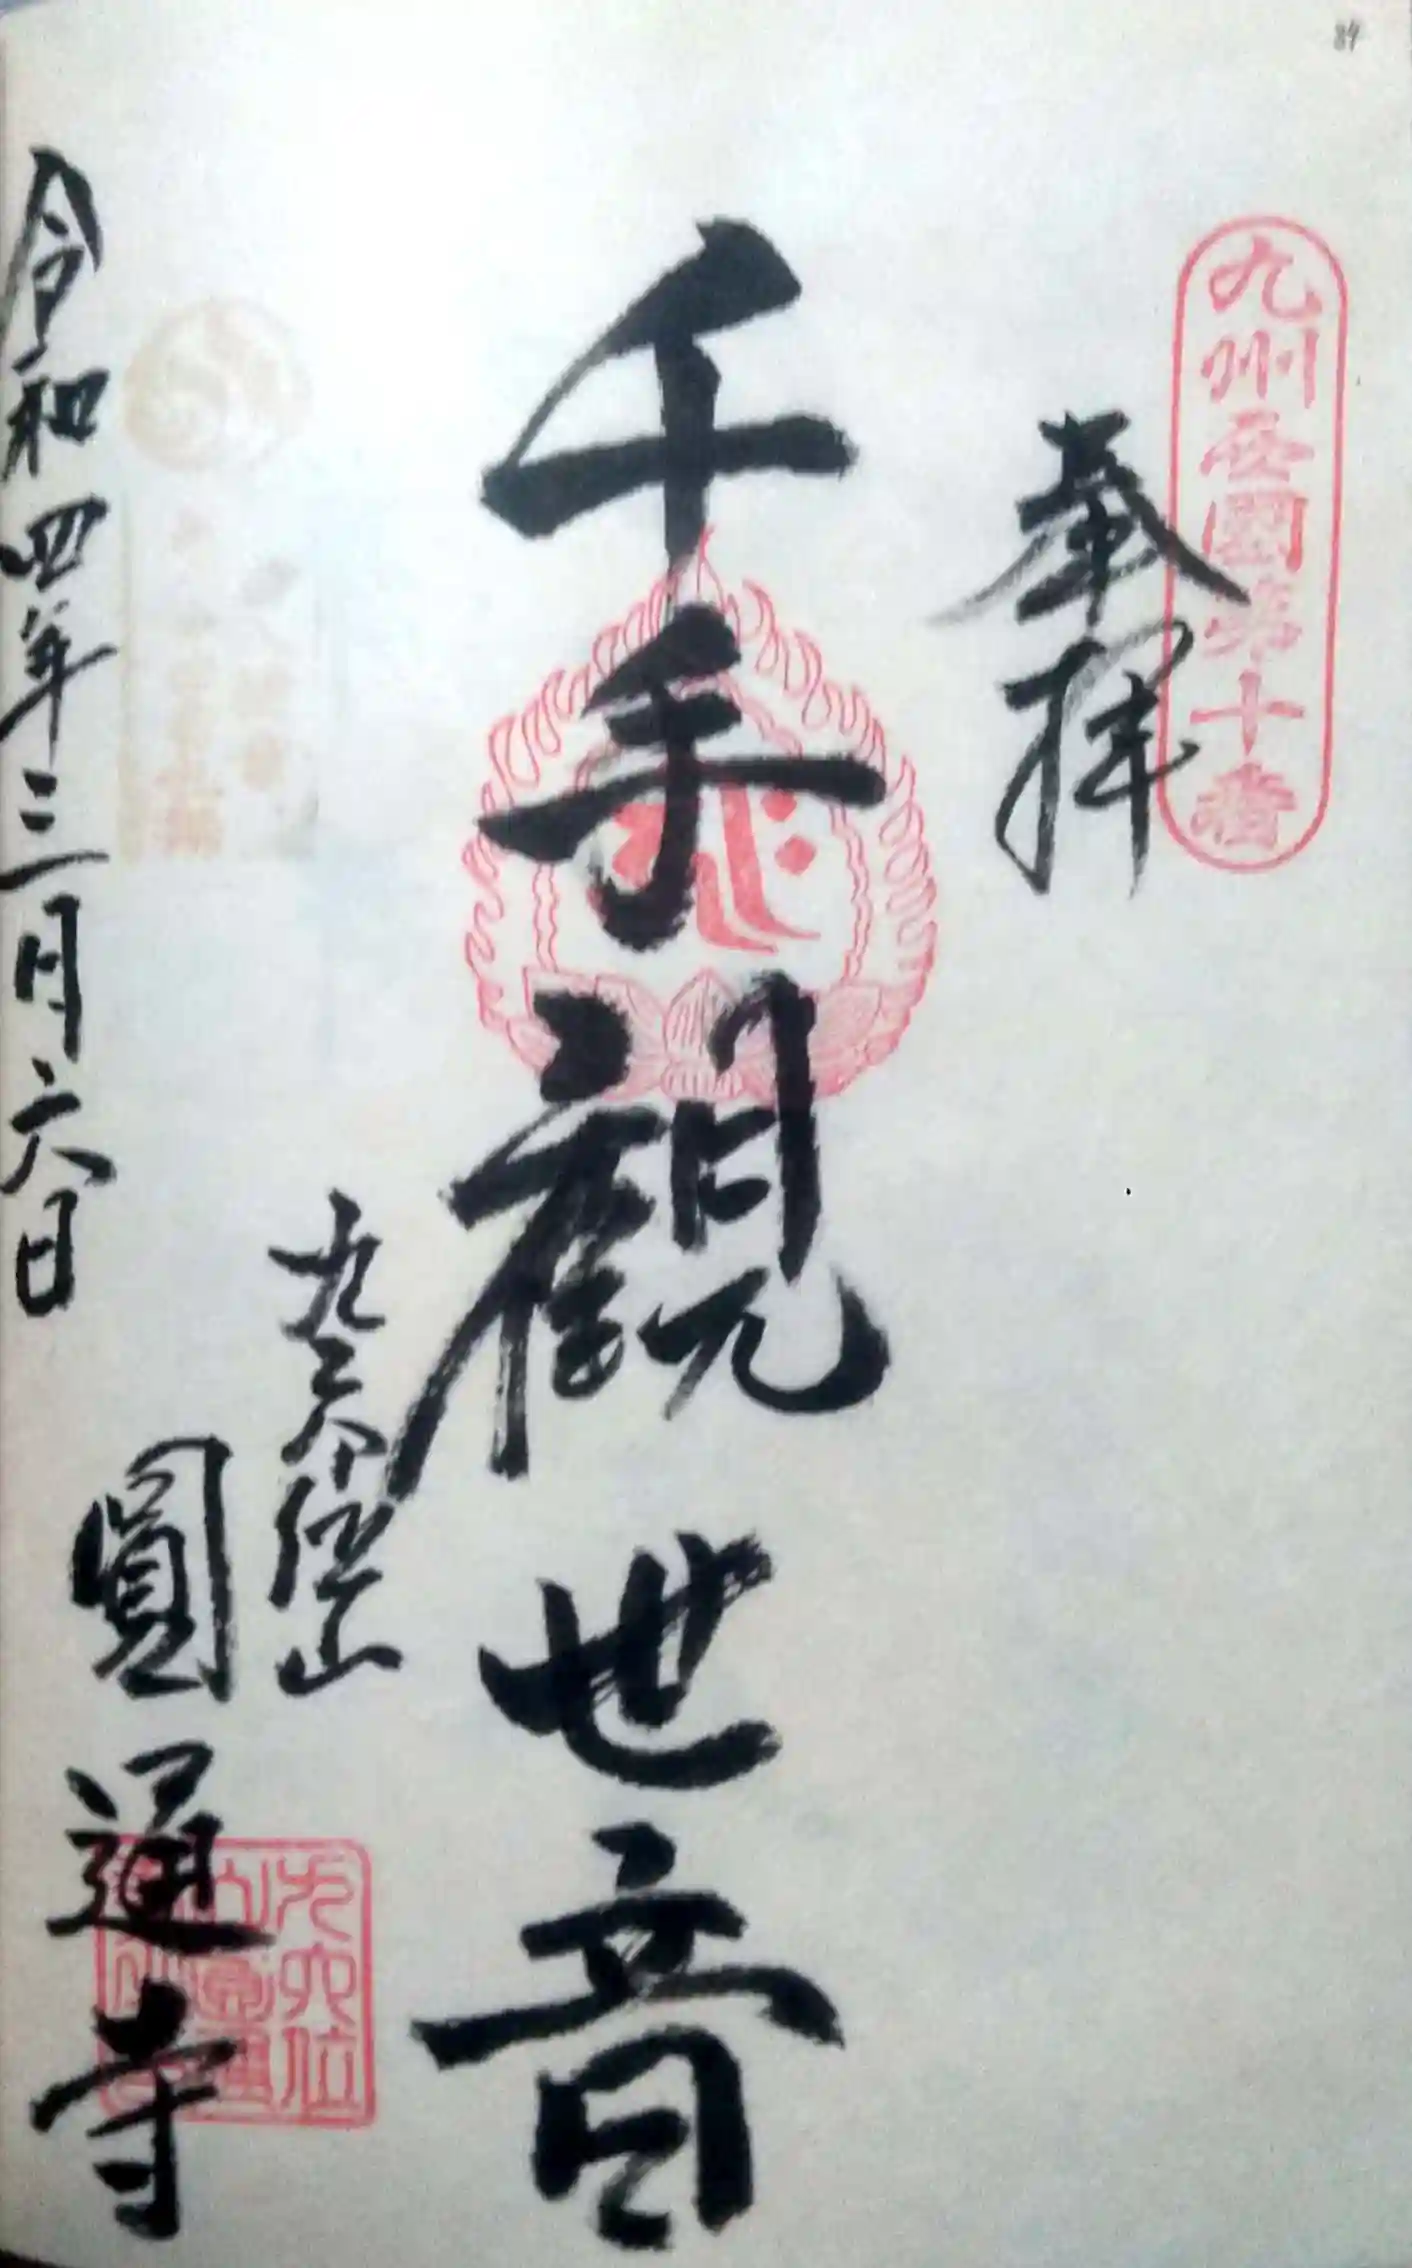 84
九州西國第十番
奉拝
千手観世音
九六位山
圓通寺
令和四年三月六日